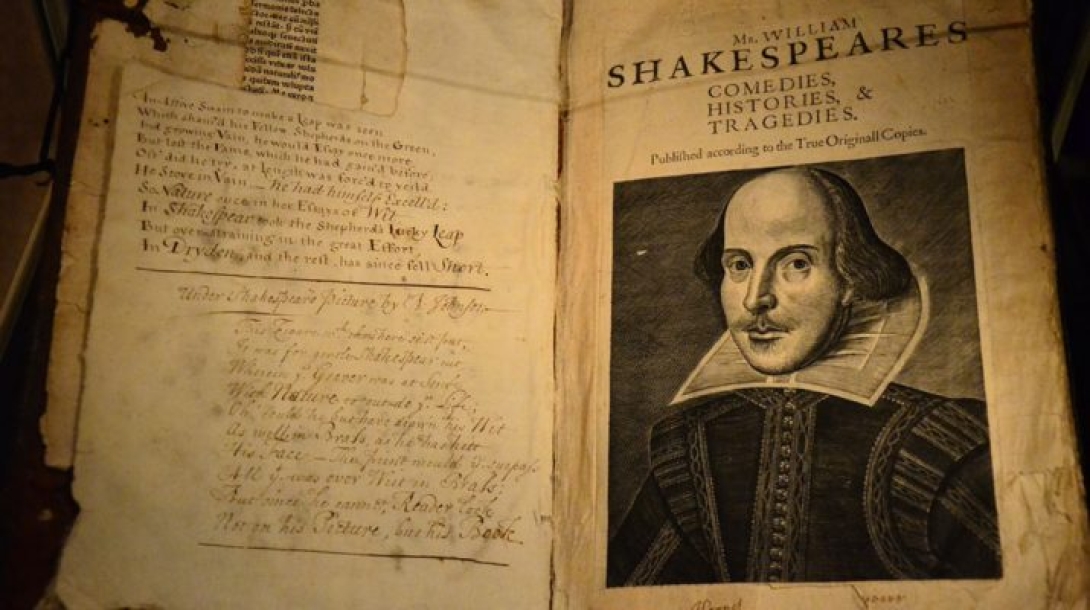 An Active Swain to make a Leap was seen
Which sham'd his Fellow Shepherds on the Green,
And growing Vain, he would Essay once more,
But lost the Fame, which he had gain'd before;
Oft' did he try, at Length was forc'd to yeild
He Strove in Vain — he had himself Excell'd:
So Nature once in her Essays of Wit
In Shakespear took the Shepherd's Lucky Leap
But over-straining in the great Effort,
In Dryden, and the rest, has since fell Short.
Under Shakespears Picture by Johnson
This Figure yt. thou here seest put,
It was for gentle Shakespear cut
Wherein ye Graver was at Strife
With Nature to outdo ye Life:
Oh, could he but have drawn his Wit
As well in Brass, as he has hitt
His Face — The print would yn surpass
All yt. was ever Writ in Brass;
But since he cannot, Reader look
Not on his Picture, but his Book.
Mr. WILLIAM
SHAKESPEARES
COMEDIES,
HISTORIES, &
TRAGEDIES.
Published according to the True Originall Copies.